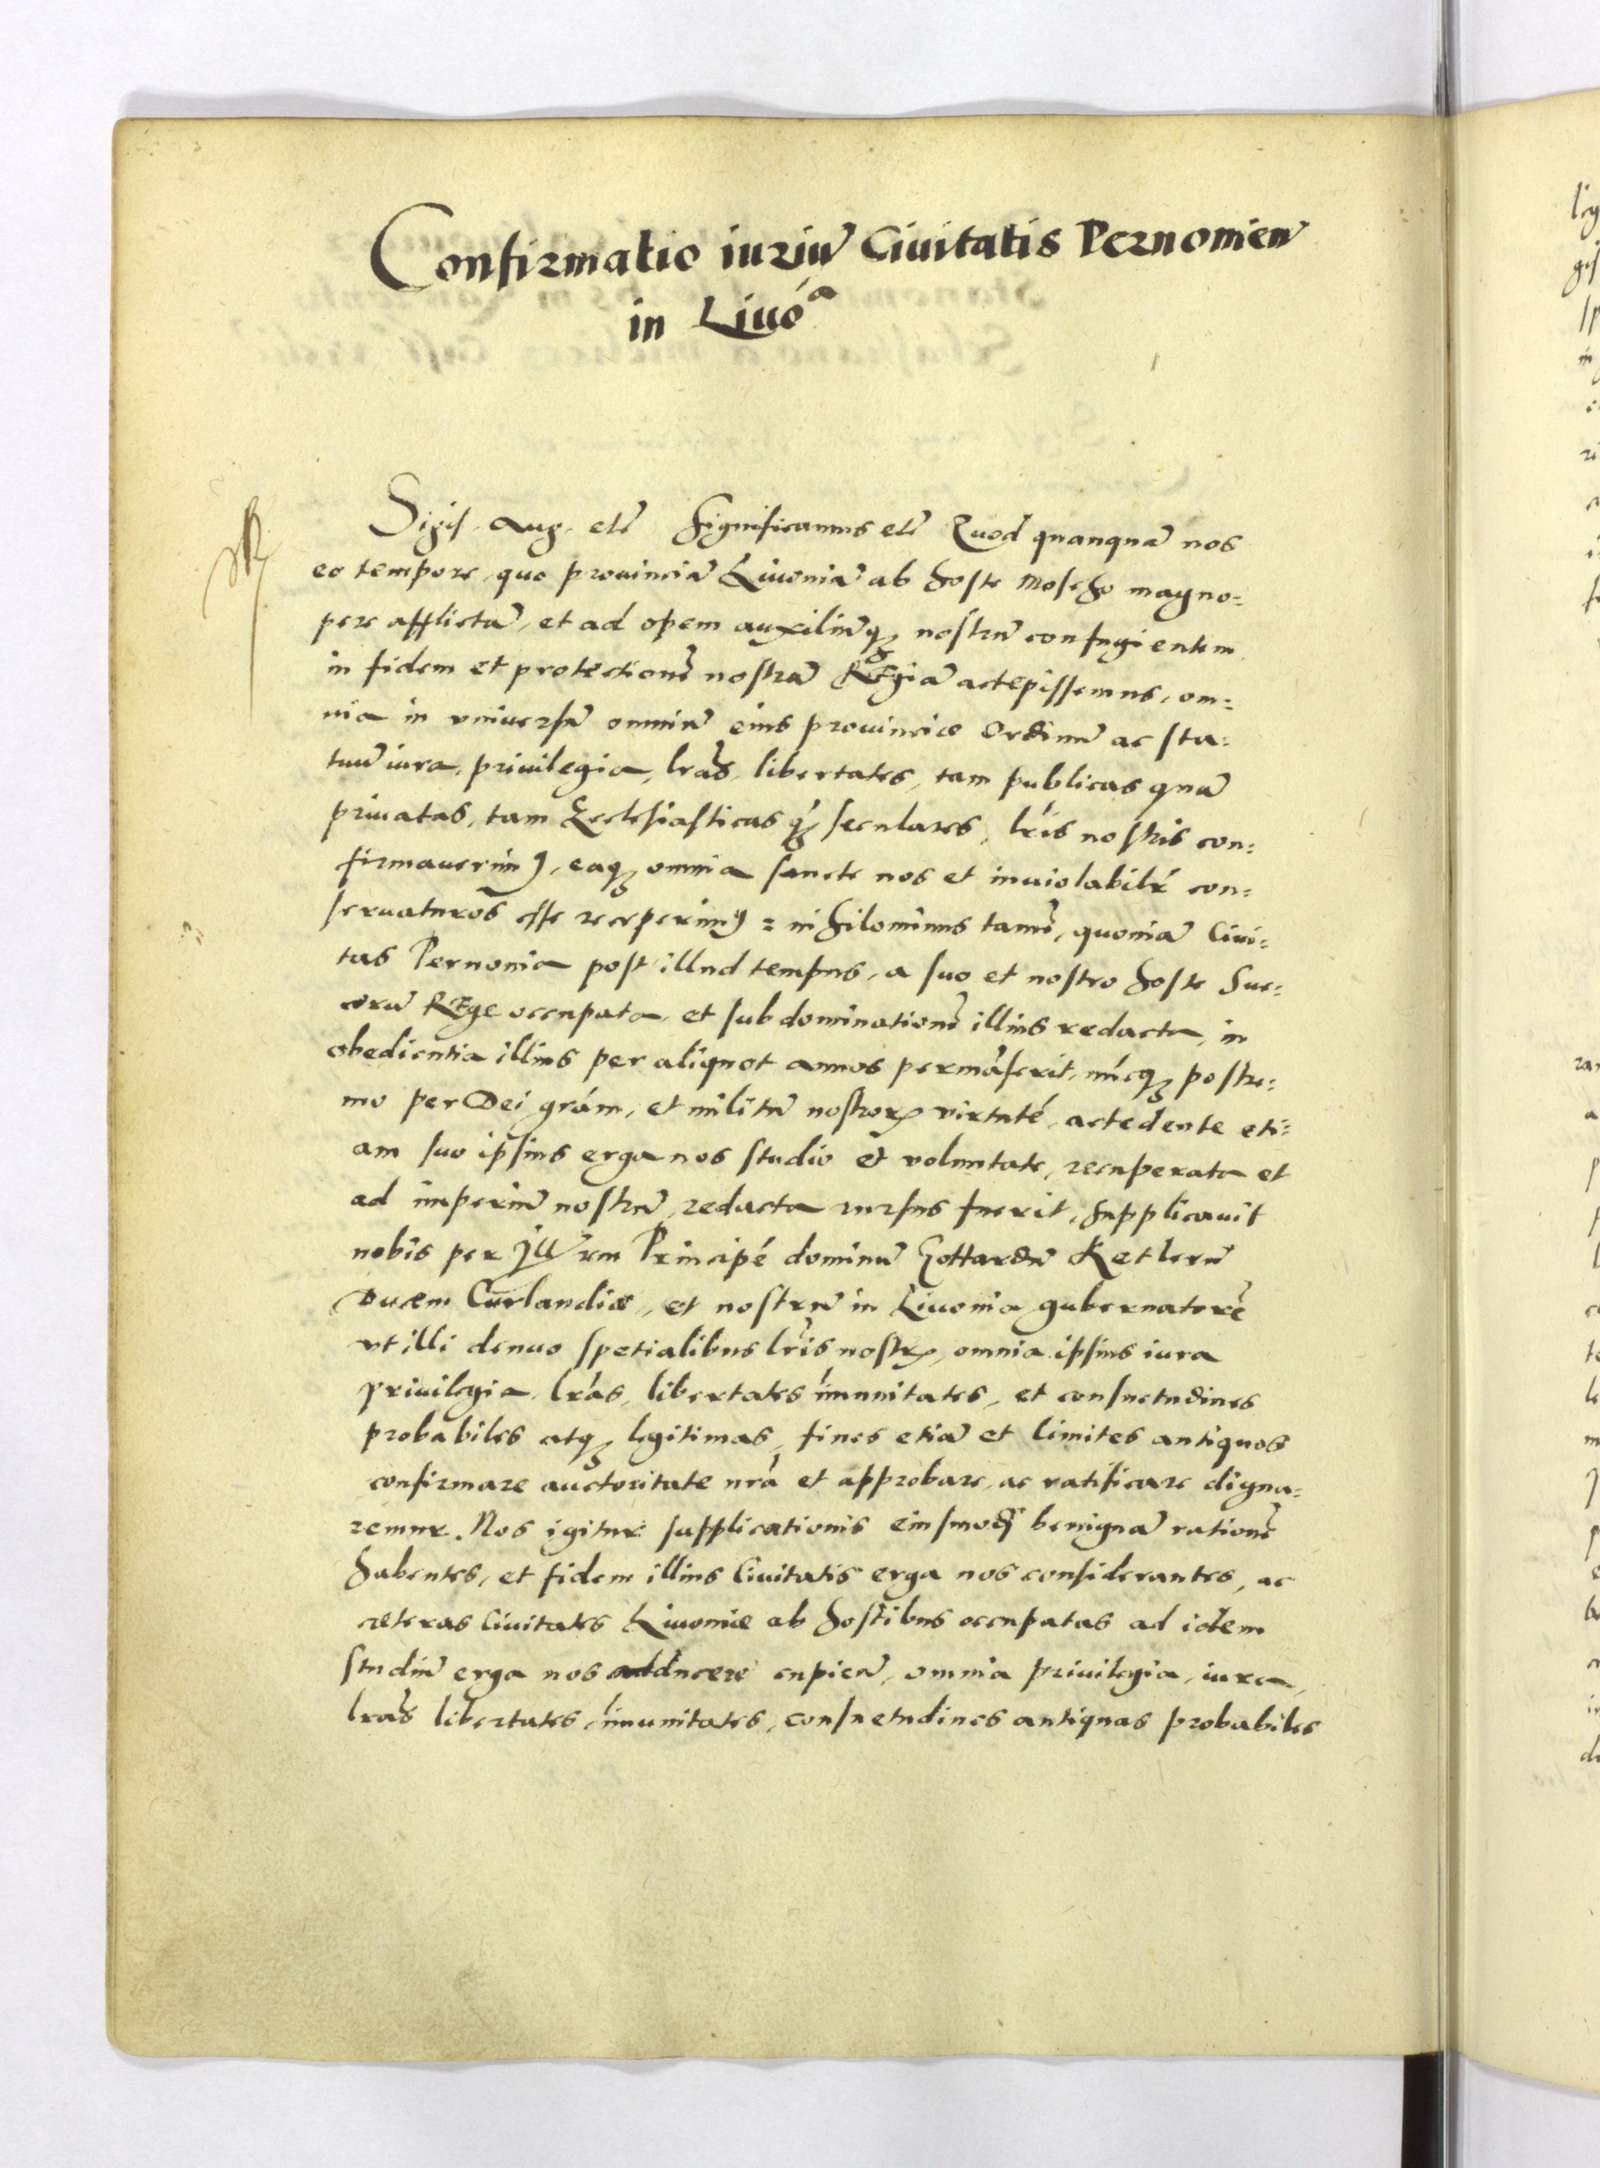 Confirmatio iuriũ Ciuitatis Pernomień
in Liuóᵃ
Sigis. Aug. etc̃ Significamus etc̃ Quod quanquã nos
eo tempore, quo prouinciã Liuoniã ab hoste Moscho magno=
pere afflictã, et ad opem auxiliũq̧ nostrũ confugientem
in fidem et protectionẽ nostrã REgiã accepissemus, om=
nia in vniuersũ omniũ eius prouinciæ Ordinũ ac sta=
tuũ iura, priuilegia, lrãs, libertates, tam publicas quã
priuatas, tam Ecclesiasticas q̃ seculares, lrĩs nostris con=
firmauerimꝰ, eaq̧ omnia sancte nos et inuiolabilr̃ con=
seruaturos esse receperimꝰ = nihilominus tamẽ, quoniã Ciui=
tas Pernonia post illud tempus, a suo et nostro hoste Sue=
corũ REge occupata, et sub dominationẽ illius redacta, in
obedientia illius per aliquot annos permãserit, nũcq̧ postre=
mo per Dei grãm, et militũ nostroꝝ virtutẽ, accedente eti=
am suo ipsius erga nos studio et voluntate, recuperata et
ad imperiũ nostrũ, redacta rursus fuerit, supplicauit
nobis per Illr̃m Principẽ dominũ Gottardũ Ketlerũ
Ducem Curlandiæ, et nostrũ in Liuonia gubernatorẽ
vt illi denuo spetialibus lrĩs nostꝝ, omnia ipsius iura
priuilegia, lrãs, libertates ĩmunitates, et consuetudines
probabiles atq̧ legitimas, fines etiã et limites antiquos
confirmare auctoritate nrã et approbare, ac ratificare digna=
remur. Nos igitur supplicationis eiusmodj benignã rationẽ
habentes, et fidem illius Ciuitatis erga nos considerantes, ac
cæteras Ciuitates Liuoniæ ab hostibus occupatas ad idem
studiũ erga nos adducere cupieñ, omnia priuilegia, iura,
lrãs libertates, ĩmunitates, consuetudines antiquas probabiles